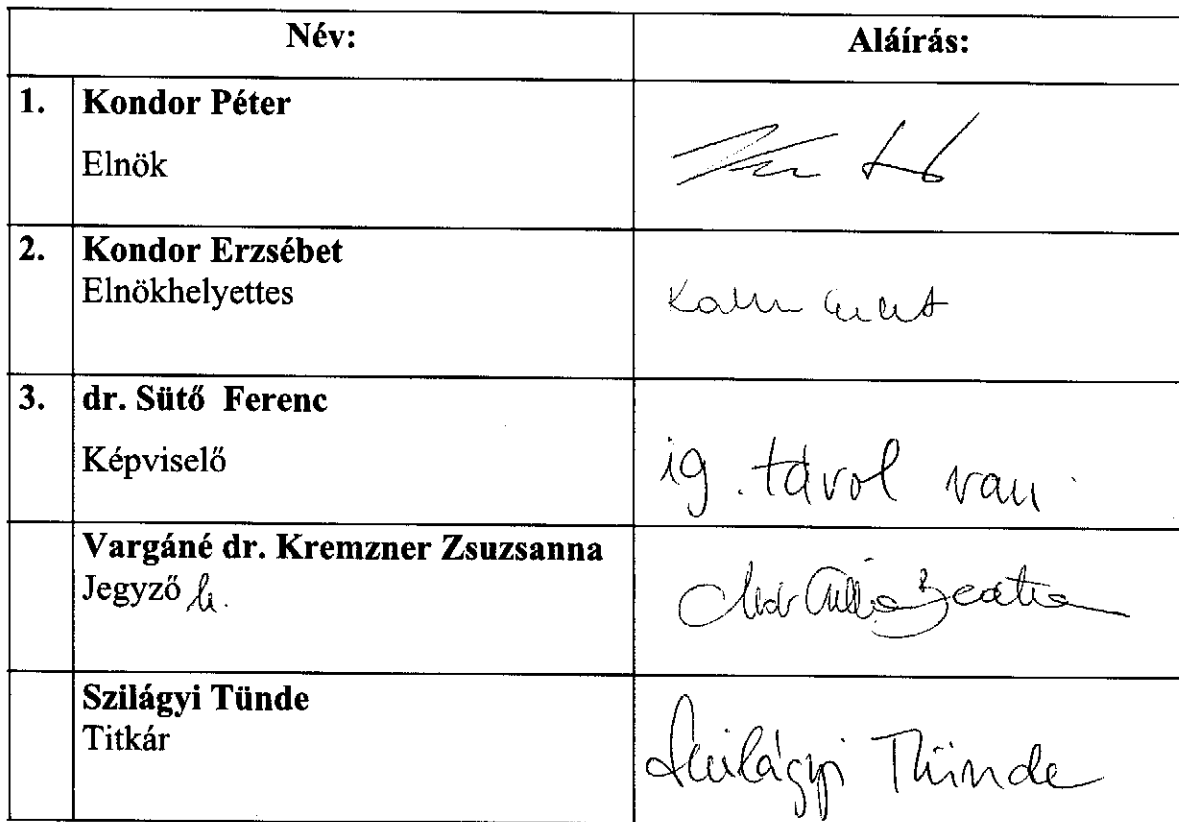 Név: Aláírás:
1. Kondor Péter
Elnök
2. Kondor Erzsébet
Elnökhelyettes
3. dr. Sütő Ferenc
Képviselő
ig. távol van.
Vargáné dr. Kremzner Zsuzsanna
Jegyző h.
Beatrix
Szilágyi Tünde
Titkár
Szilágyi Tünde